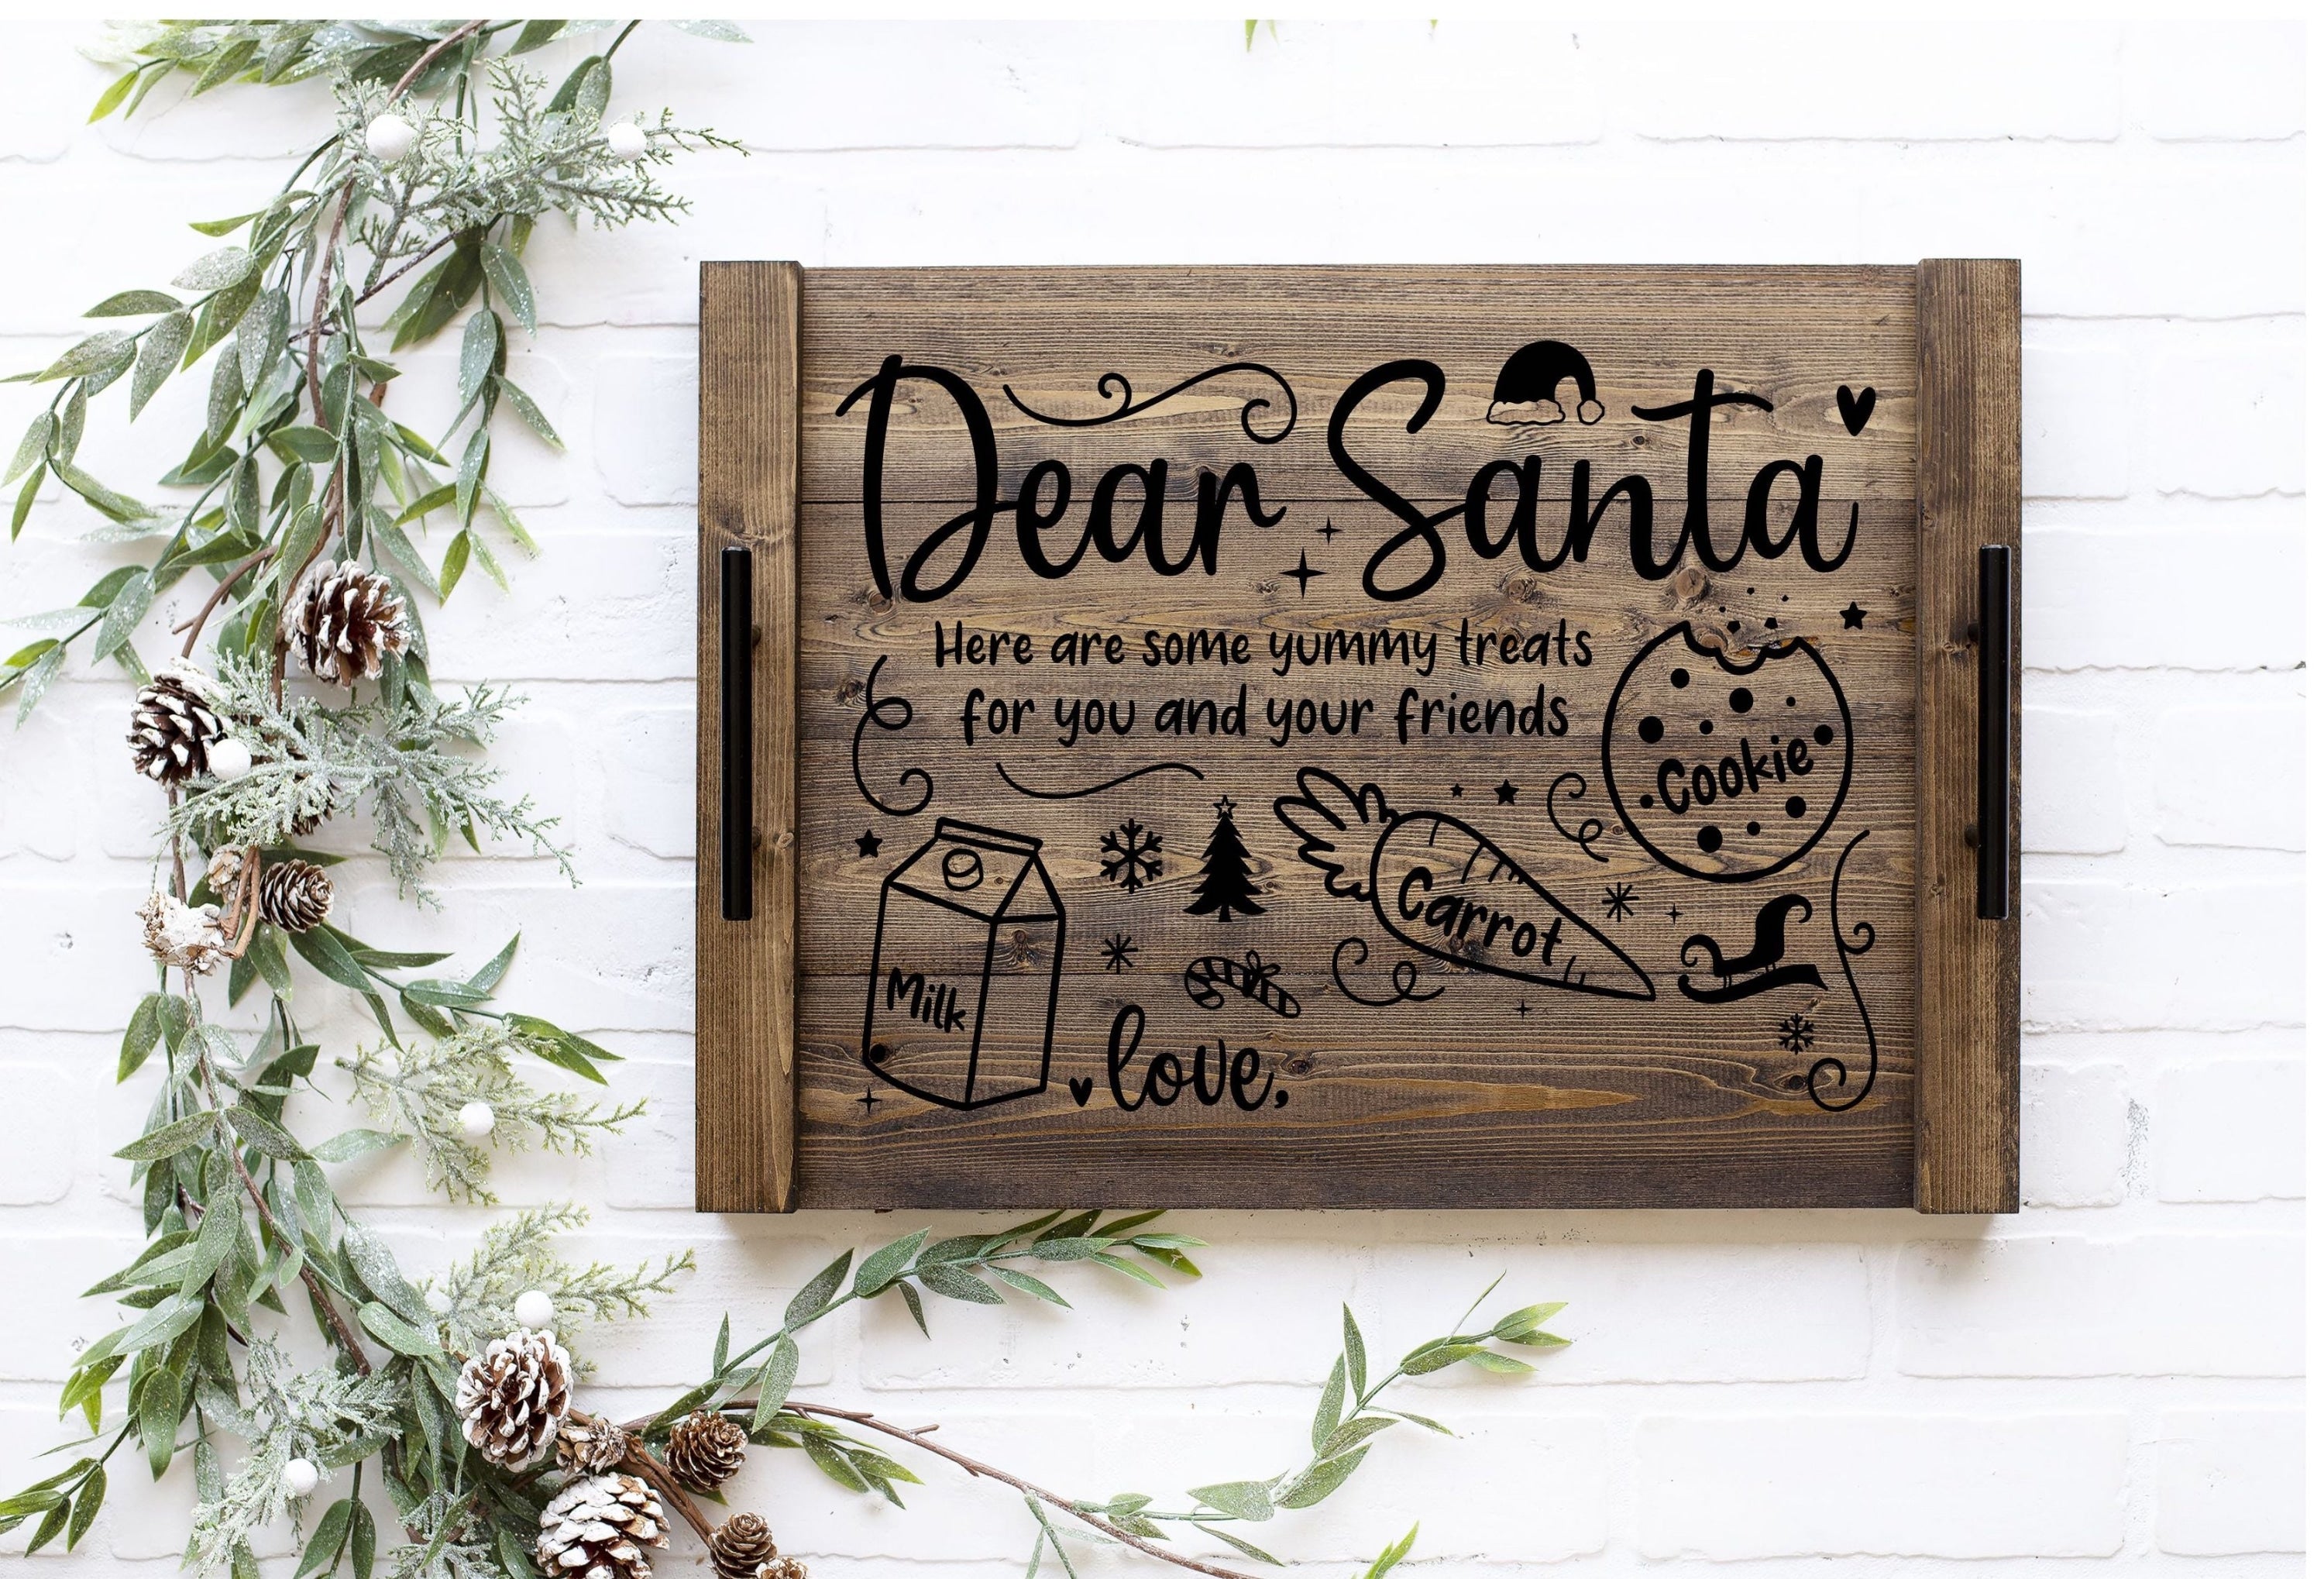 Dear Santa
Here are some yummy treats
for you and your friends
Cookie
Carrot
Milk
love,